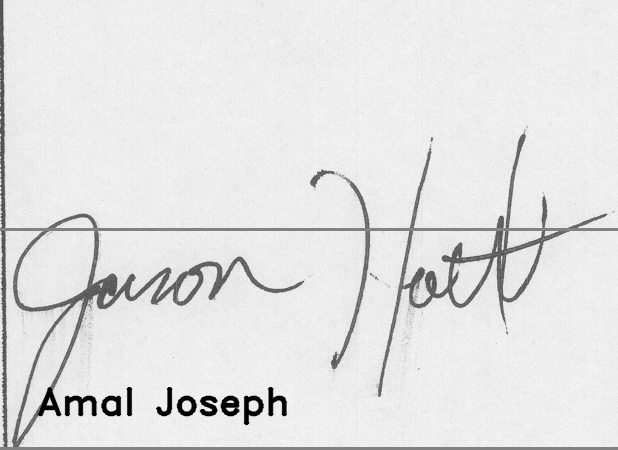 Jason Hatt
Amal Joseph